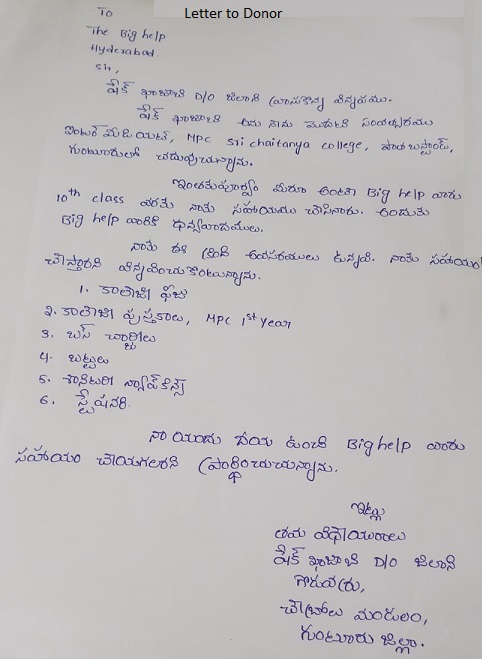 Letter to Donor
To
The Big help
Hyderabad.
Sir,
షేక్ ఖాజాబి D/O జిలాని వ్రాసుకొన్న విన్నపము.
షేక్ ఖాజాబి అను నాను మొదటి సంవత్సరము
ఇంటర్ మీడియట్, MPC Sri chaitanya college, పాత బస్టాండ్,
గుంటూరులో చదువుచున్నాను.
ఇంతకుపూర్వం మీరూ అంటా Big help వారు
10th class వరకు నాకు సహాయము చేసినారు. అందుకు
Big help వారికి ధన్యవాదములు.
నాకు ఈ క్రింది అవసరములు ఉన్నవి. నాకు సహాయం
చేస్తారని విన్నవించుకొంటున్నాను.
1. కాలేజి ఫీజు
2. కాలేజి పుస్తకాలు, MPC 1st year
3. బస్ చార్జీలు
4. బట్టలు
5. శానిటరీ న్యాప్ కిన్స్
6. స్టేషనరి
నా యందు దయ ఉంచి Big help వారు
సహాయం చేయగలరని ప్రార్థించుచున్నాను.
ఇట్లు
తమ విధేయురాలు
షేక్ ఖాజాబి D/O జిలాని
గొరువర్రు,
చేబ్రోలు మండలం,
గుంటూరు జిల్లా.